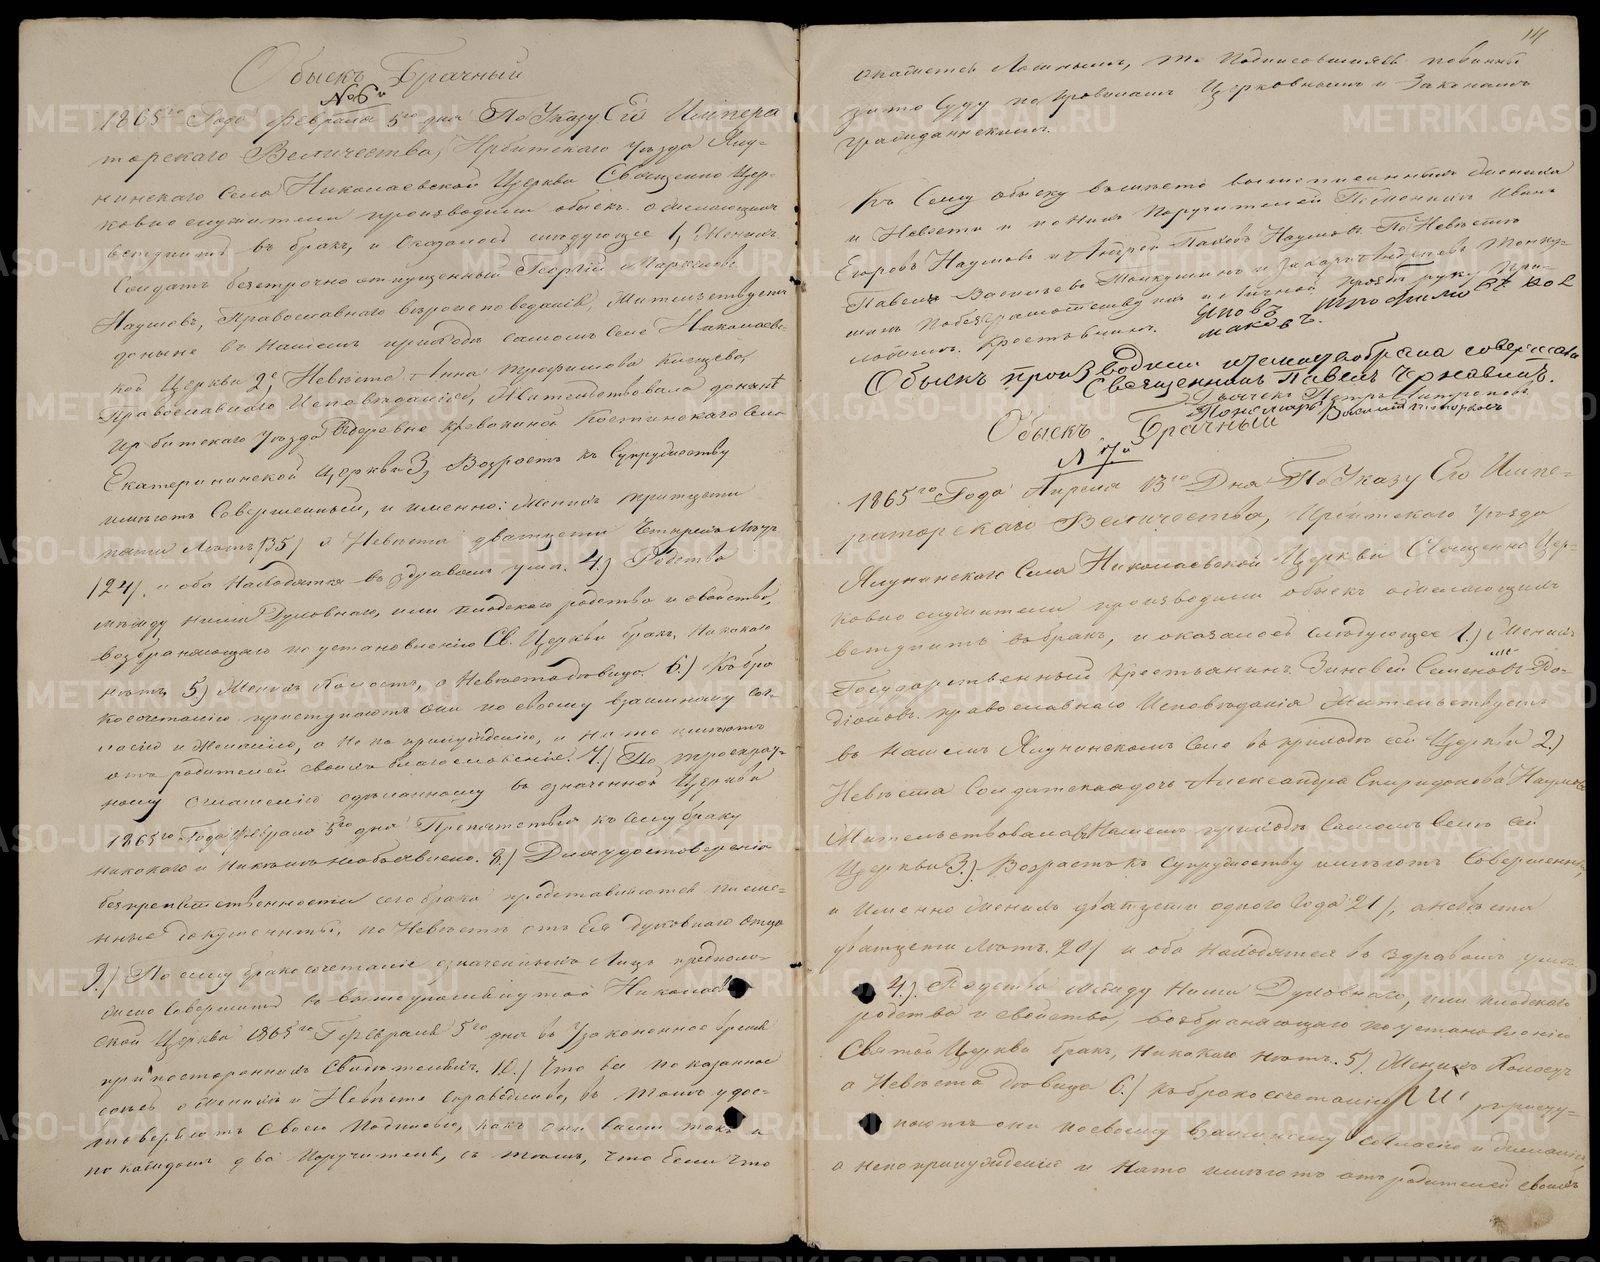 Обыскъ Брачный
№ 6й
1865го Года Февраля 5го дня По Указу Его Импера
торскаго Величества, Ирбитскаго уѣзда Ялу-
нинскаго Села Николаевской Церкви Священно Цер-
ковно служители производили обыскъ о желающихъ
вступить въ бракъ, и оказалось слѣдующее 1, Женихъ
Солдатъ безсрочно отпущенный Георгій Маркеловъ
Наумовъ, Православнаго вѣроисповеданія, Жительствуетъ
доныне въ нашемъ приходѣ самомъ Селе Николаевс-
кой Церкви 2е, Невѣста Анна Трофимова
Православнаго Исповѣданія, Жительствовала донынѣ
Ирбитскаго уѣзда деревне Кревокина Костинскаго Села
Екатерининской Церкви 3, Возрастъ къ Супружеству
имѣютъ Совершенный, и именно: Женихъ тритцети
пяти Лѣтъ /35/ а Невѣста дватцети Четырехъ Лѣтъ
/24/. и оба находятся въ здравомъ умѣ. 4.) Родства
между ними Духовнаго, или плодскаго родства и свойства,
возбраняющаго по установленію Св. Церкви бракъ, никакого
нѣтъ 5) Женихъ Холостъ, а Невѣста дѣвица. 6.) Къ бра
косочетанію приступаютъ они по своему взаимному сог-
ласію и желанію, а не по принужденію, и на то имѣютъ
отъ родителей своихъ благословеніе. 7.) По троекрат-
ному оглашенію сдѣланному въ означенной Церкви
1865го Года Февраля 5го дня Препятствія къ сему браку
никакого и никѣмъ необъявлено. 8.) Для удостоверенія
безпрепятственности сего брака представляются писме-
нные документы, по Невѣстѣ отъ Ея духовнаго отца
9.) По сему бракосочетаніе означенныхъ Лицъ предполо-
жено совершить въ вышеупомянутой Николаев
ской Церкви 1865го Г. Февраля 5го дня въ Узаконенное время
при постороннихъ Свидѣтеляхъ. 10.) Что все показанное
здѣсь о Женихѣ и Невѣсте справедливо, въ томъ удос-
товеряютъ своею подписью, какъ они сами такъ и
по каждомъ два Поручителя, съ тѣмъ, что если что
14
окажется Ложнымъ, то подписавшіяся повинны
зато Суду по правиламъ Церковнымъ и Законамъ
гражданскимъ.
Къ Сему обыску вместо вышеписанныхъ жениха
и Невѣсты и по нихъ Поручителей По женихѣ Иванъ
Егоровъ Наумовъ и Андрей Наумовъ По Невѣсте
Павелъ Васильевъ и Захаръ Андреевъ
по безграмотству ихъ и личной прозбѣ руку при-
ложилъ. Крестьянинъ. Трофимъ
маковъ.
Обыскъ производили и
Священникъ Павелъ Чернавинъ.
Дьячекъ Петръ
Пономарь Василій
Обыскъ Брачный
№ 7й
1865го Года Апреля 13го Дня По Указу Его Импе-
раторскаго Величества, Ирбитскаго уѣзда
Ялунинскаго Села Николаевской Церкви Священно Цер-
ковно служители производили обыскъ о желающихъ
вступить въ бракъ, и оказалось слѣдующее 1.) Женихъ
Государственный крестьянинъ Зиновей Семеновъ Ро-
діоновъ. православнаго Исповѣданія Жительствуетъ
въ нашемъ Ялунинскомъ Селе въ приходѣ сей Церкви 2.)
Невѣста Солдатская дочь Александра Спиридонова Наумова
Жительствовала въ Нашемъ приходѣ Самомъ Селѣ сей
Церкви 3.) Возрастъ къ супружеству имѣютъ Совершенный,
и Именно женихъ дватцети одного Года 21/, а невѣста
дватцети лѣтъ. 20/ и оба находятся въ здравомъ умѣ.
4.) Родства между ними Духовнаго, или плодскаго
родства и свойства, возбраняющаго по установленію
Святой Церкви бракъ, никакого нѣтъ. 5) Женихъ Холостъ
а Невѣста дѣвица 6.) къ бракосочетанію приступ-
паютъ они по своему взаимному согласію и желанію,
а непопринужденію и на то имѣютъ отъ родителей своихъ